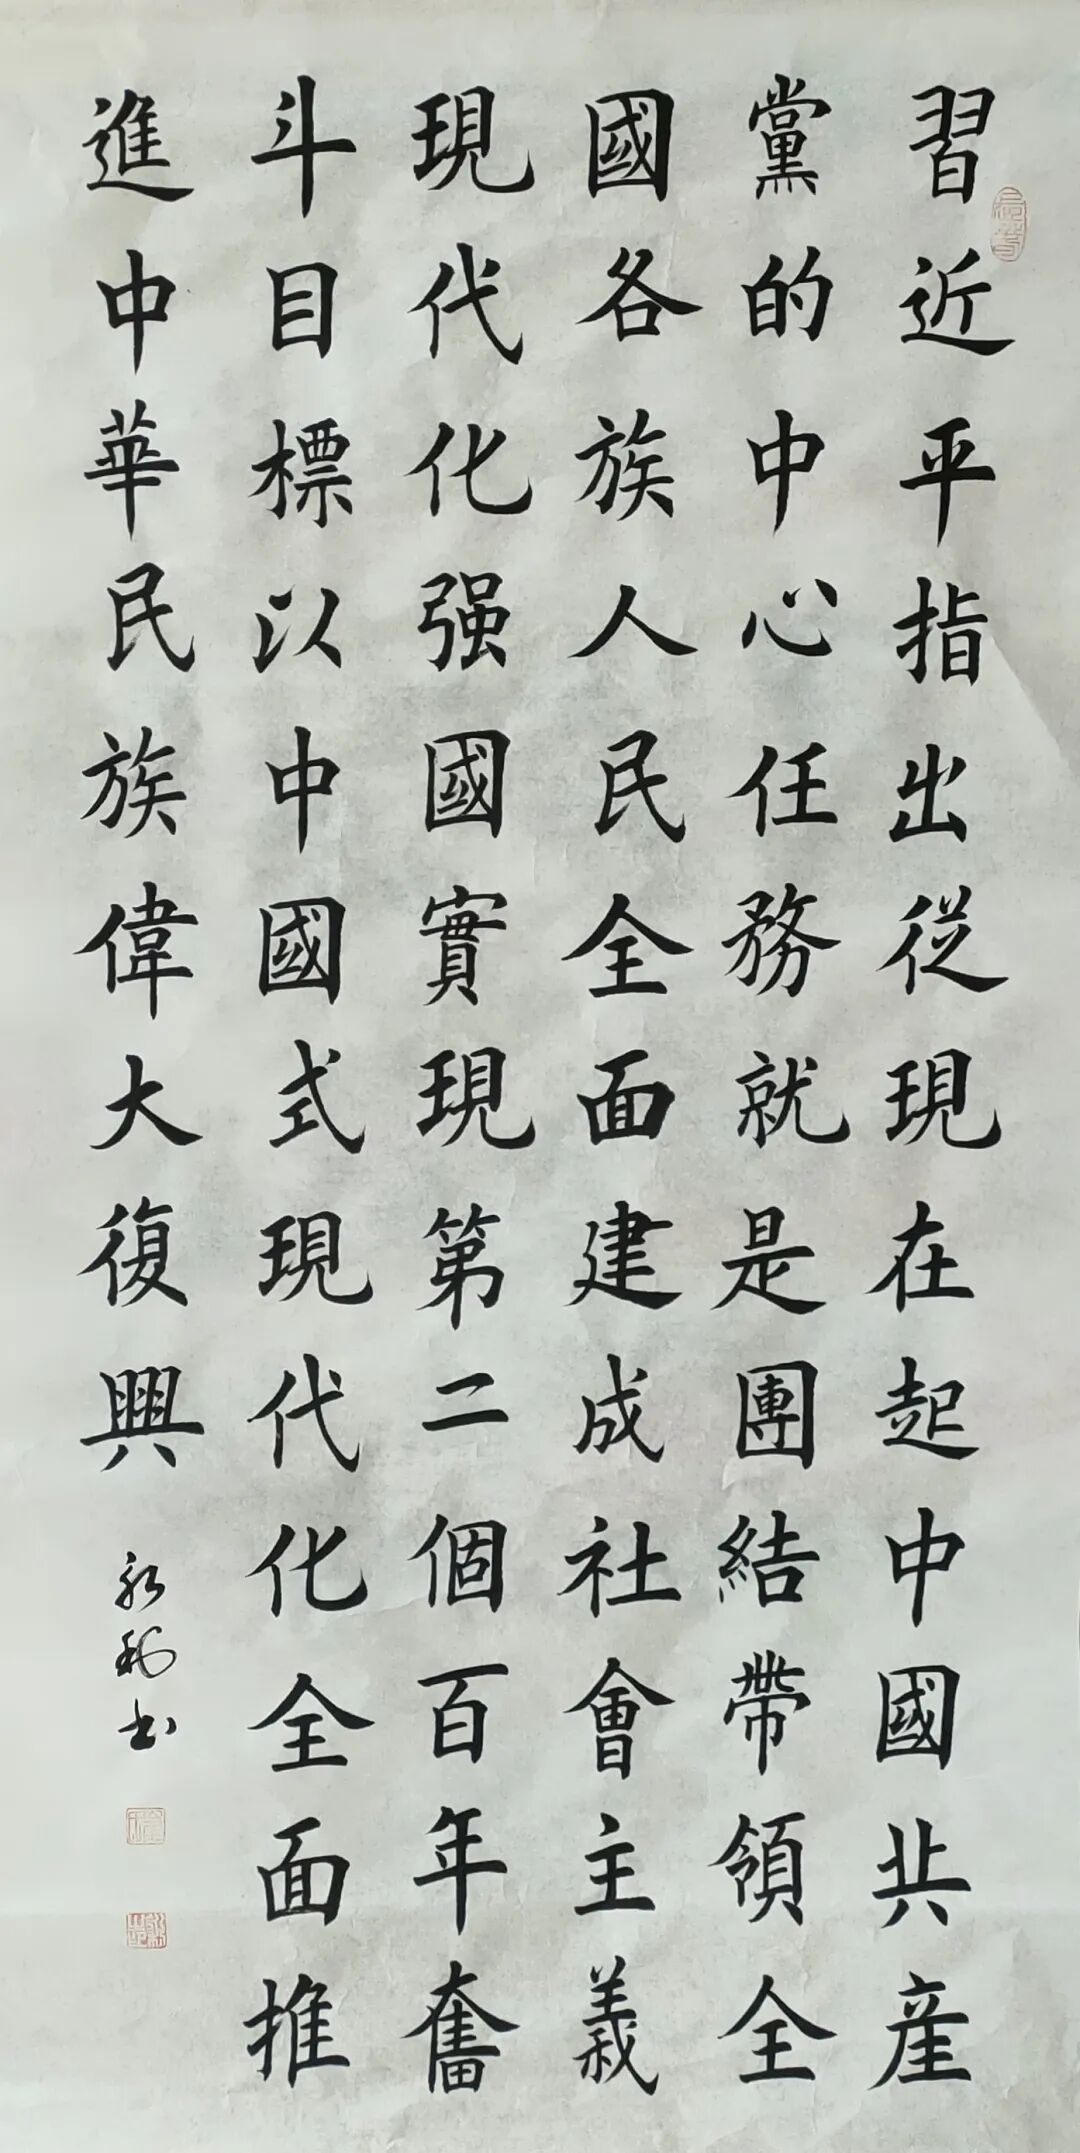 習近平指出從現在起中國共産
黨的中心任務就是團結帶領全
國各族人民全面建成社會主義
現代化强國實現第二個百年奮
斗目標以中國式現代化全面推
進中華民族偉大復興
書